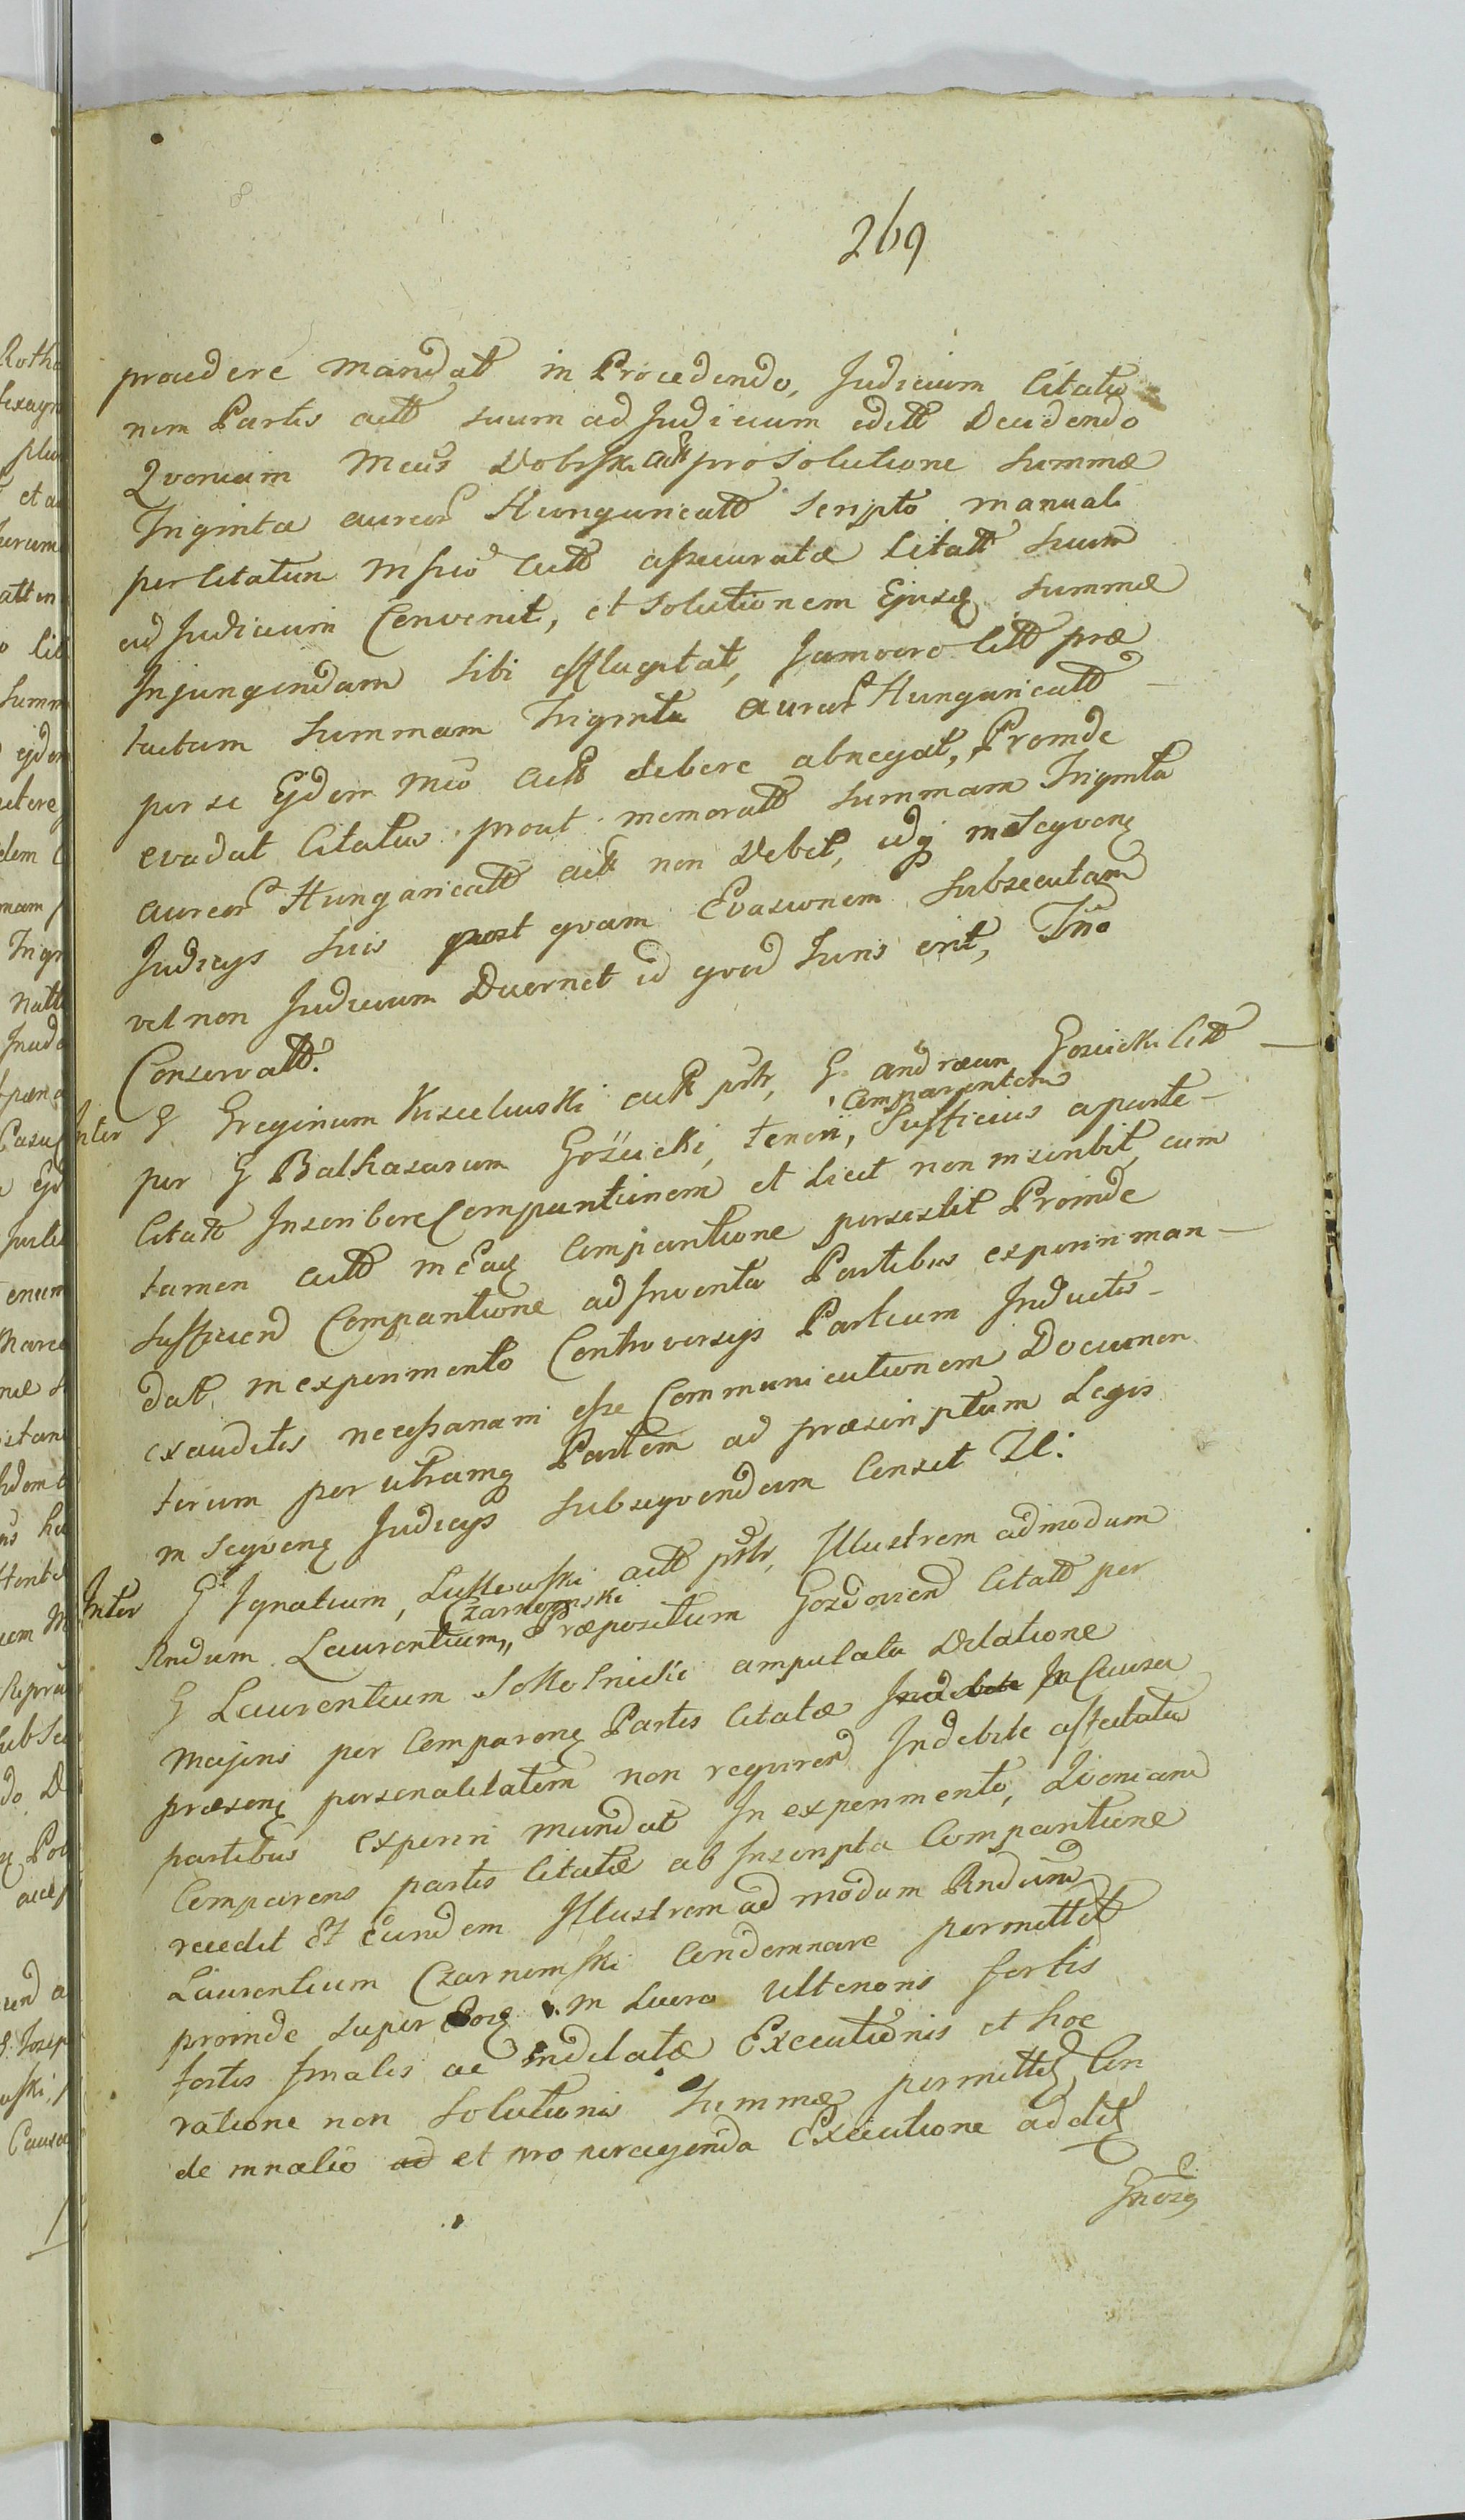 269
procedere mandat in Procedendo, Judicium Citatio
nem Partis actt suum ad Judicium edett Decidendo
Qvoniam Mcus Dobrski actt pro Solutione Summæ
Triginta aureor Hungaricatt scripto manuali
per Citatum Msico actt assecuratæ Citatt suum
ad Judicium Convenit, et solutionem Ejusq summæ
Injungendam sibi efflagitat, Jamvero Citt præ
tactum summam Triginta aureor Hungaricatt
per se Ejdem Mco actt debere abnegat, Proinde
evadat Citatus prout memoratt summam Triginta
aureor Hungaricatt actt non debet, idq in Seqvenq
Judicijs suis post qvam Evasionem subsecutam
vel non Judicium Decernet id qvod Juris erit, Tno
Conservatt.
Inter G Greginum Kisielewski actt pstr, G. andræam Gozicki Citt
comparentem
per G Balthasarum Goźicki, tenen, Sufficius aparte
Citatt Inscribere Comparitionem et licet non inscribit, cum
tamen actt in Eaq Comparitione persistit Proinde
Sufficien Comparitione adInventa Partibus experiri man
dat, in experimento Controversijs Partium Inductis
exauditis necessariam esse Communicationem Documen
torum per utramq Partem ad præscriptum Legis
in seqvenq Judicijs subseqvendam Censet Tl:
Inter G Ignatium, Lussewski actt pstr, Illustrem admodum
Czarnomski
Rndum Laurentium,, Præpositum Gozdovien Citatt per
G Laurentium Sokolnicki ampulata Dilatione
Majoris per Comparenq Partis Citatæ Indebite In Causa
præsenq personalitatem non reqviren Indebite affectata
partibus experiri mandat In experimento, Qvoniam
Comparens partis Citatæ ab Inscripta Comparitione
recedit Et Eundem Illustrem admodum Rndum
Laurentium Czarnomski Condemnare permittit
proinde super Eoq in Lucro Ulterioris fortis
fortis finalis ac indilatæ Executionis et hoc
ratione non solutionis Summæ permittt, Con
demnatio ad et pro peragenda Executione addit
Gnosq